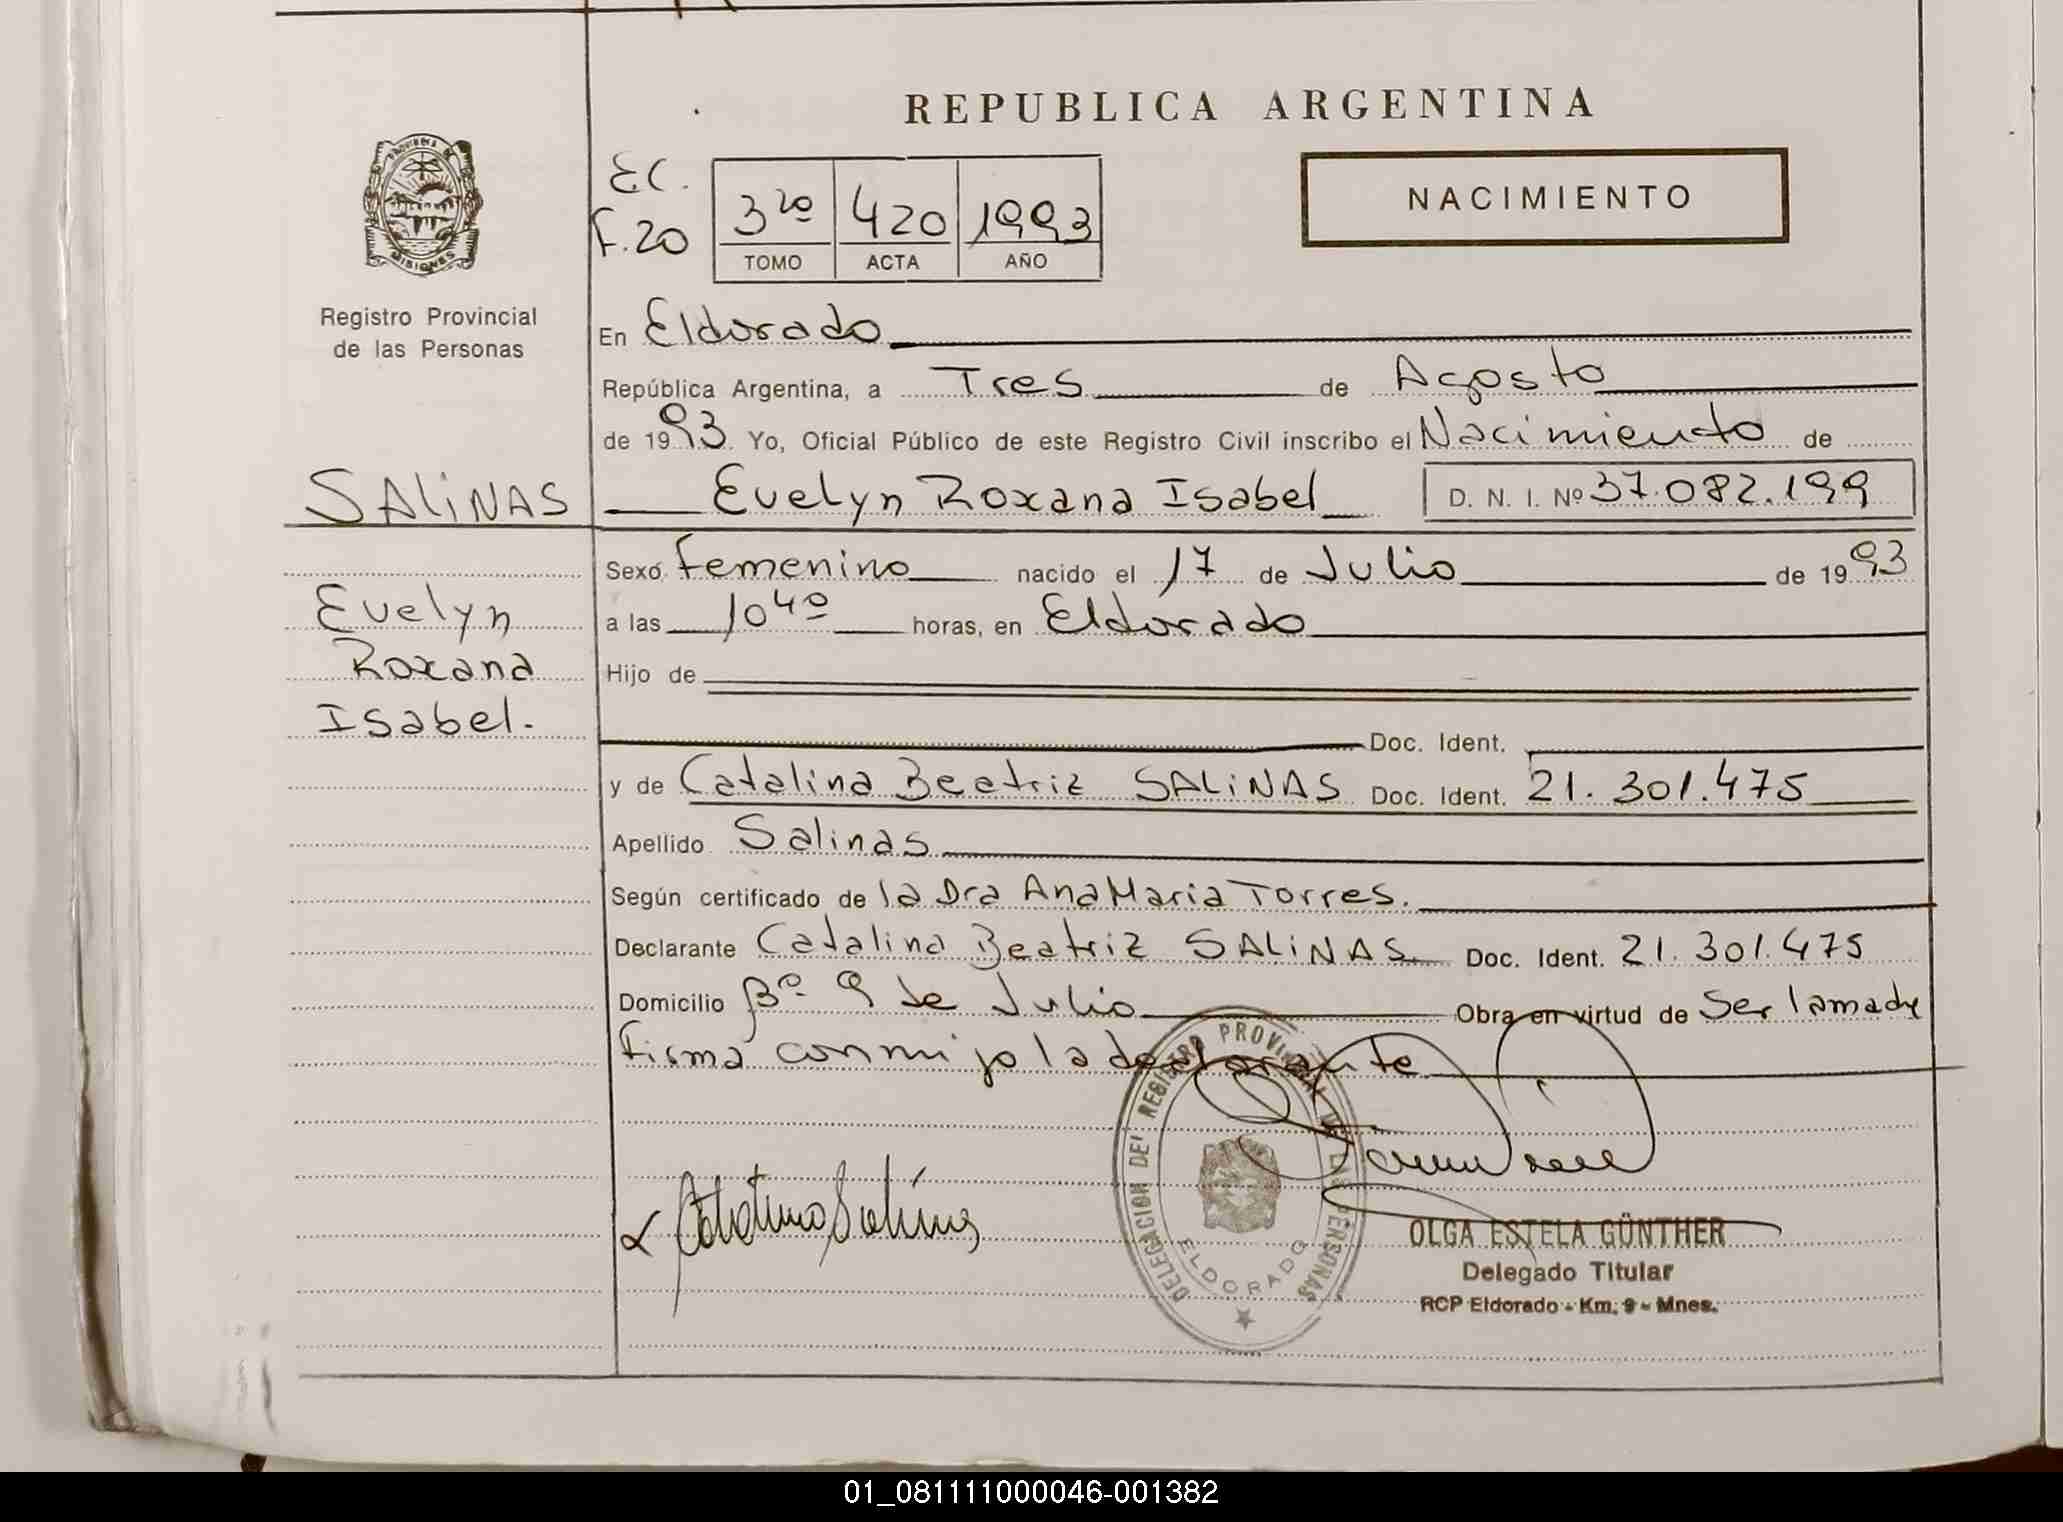 REPUBLICA ARGENTINA
PROVINCIA DE
MISIONES
Registro Provincial
de las Personas
EC.
F.20
3ro 420 1993
TOMO ACTA AÑO
NACIMIENTO
En Eldorado
República Argentina, a Tres de Agosto
de 1993. Yo, Oficial Público de este Registro Civil inscribo el Nacimiento de
SALiNAS
Evelyn Roxana Isabel D. N. I. Nº 37.082.199
Sexo Femenino nacido el 17 de Julio de 1993
Evelyn
Roxana
Isabel.
a las 10 40 horas, en Eldorado
Hijo de
Doc. Ident.
y de Catalina Beatriz SALiNAS Doc. Ident. 21.301.475
Apellido Salinas
Según certificado de la Dra Ana Maria Torres.
Declarante Catalina Beatriz SALiNAS Doc. Ident. 21.301.475
Domicilio Bº 9 de Julio Obra en virtud de Ser la madre
Firma conmigo la declarante
Catalina Salinas
DELEGACION DEL REGISTRO PROVINCIAL DE LAS PERSONAS
ELDORADO
OLGA ESTELA GÜNTHER
Delegado Titular
RCP Eldorado - Km. 9 - Mnes.
01_081111000046-001382